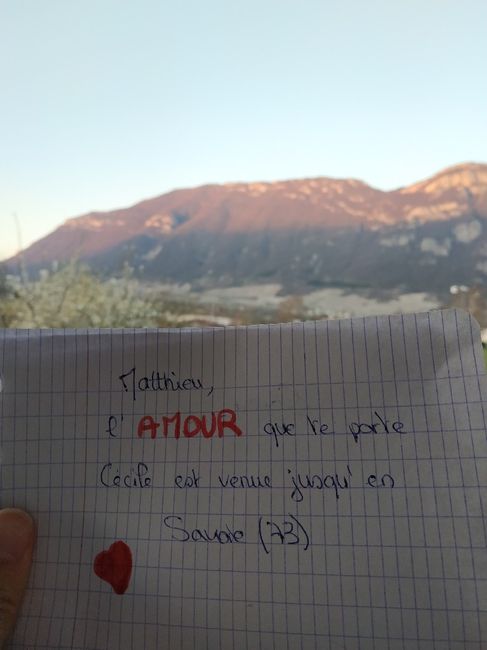 Matthieu,
l'AMOUR que te porte
Cécile est venue jusqu'en
Savoie (73)